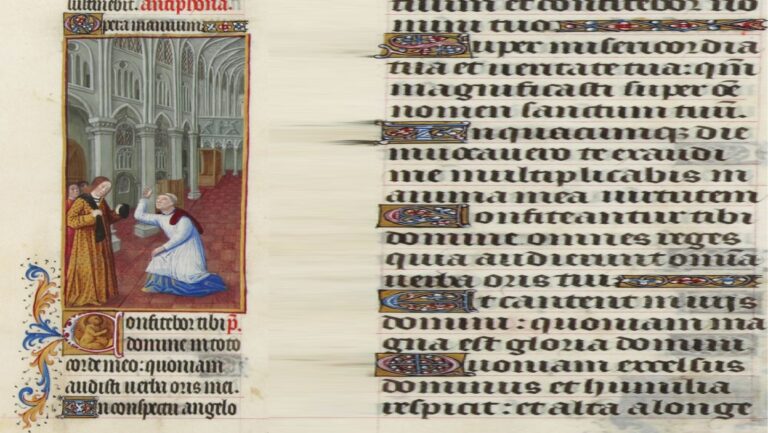 sustinebit. antiphona.
Opera manuum
Confitebor tibi p̄.
domine in toto
corde meo: quoniam
audisti uerba oris mei.
In conspectu angelo
tuum et confitebor no
mini tuo.
Super misericordia
tua et ueritate tua: qm̄
magnificasti super oē
nomen sanctum tuū.
In quacumqꝫ die
inuocauero te exaudi
me multiplicabis in
anima mea uirtutem
Confiteantur tibi
domine omnes reges
quia audierunt om̄ia
uerba oris tui
Et cantent in uijs
domini: quoniam ma
gna est gloria domini
Quoniam excelsus
dominus et humilia
respicit: et alta a longe